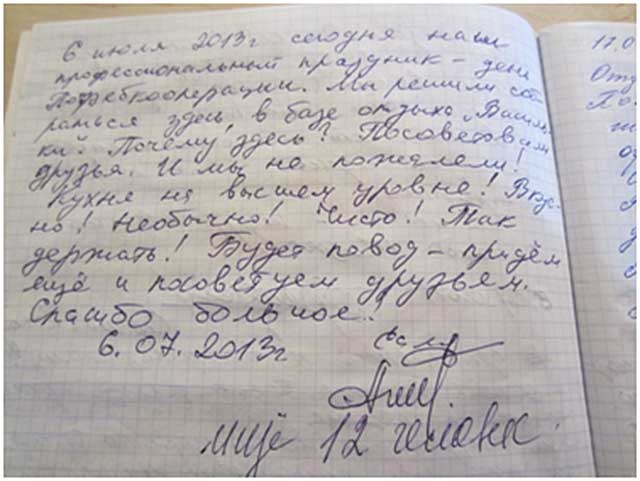 6 июля 2013г сегодня наш
профессиональный праздник - день
Потребкооперации. Мы решили соб-
раться здесь, в базе отдыха „Василь-
ки". Почему здесь? Посоветовали
друзья. И мы не пожалели!
Кухня на высшем уровне! Вкус-
но! Необычно! Чисто! Так
держать! Будет повод - придём
ещё и посоветуем друзьям.
Спасибо большое!
6.07.2013г
ещё 12 человек.
17.0
Отд
По